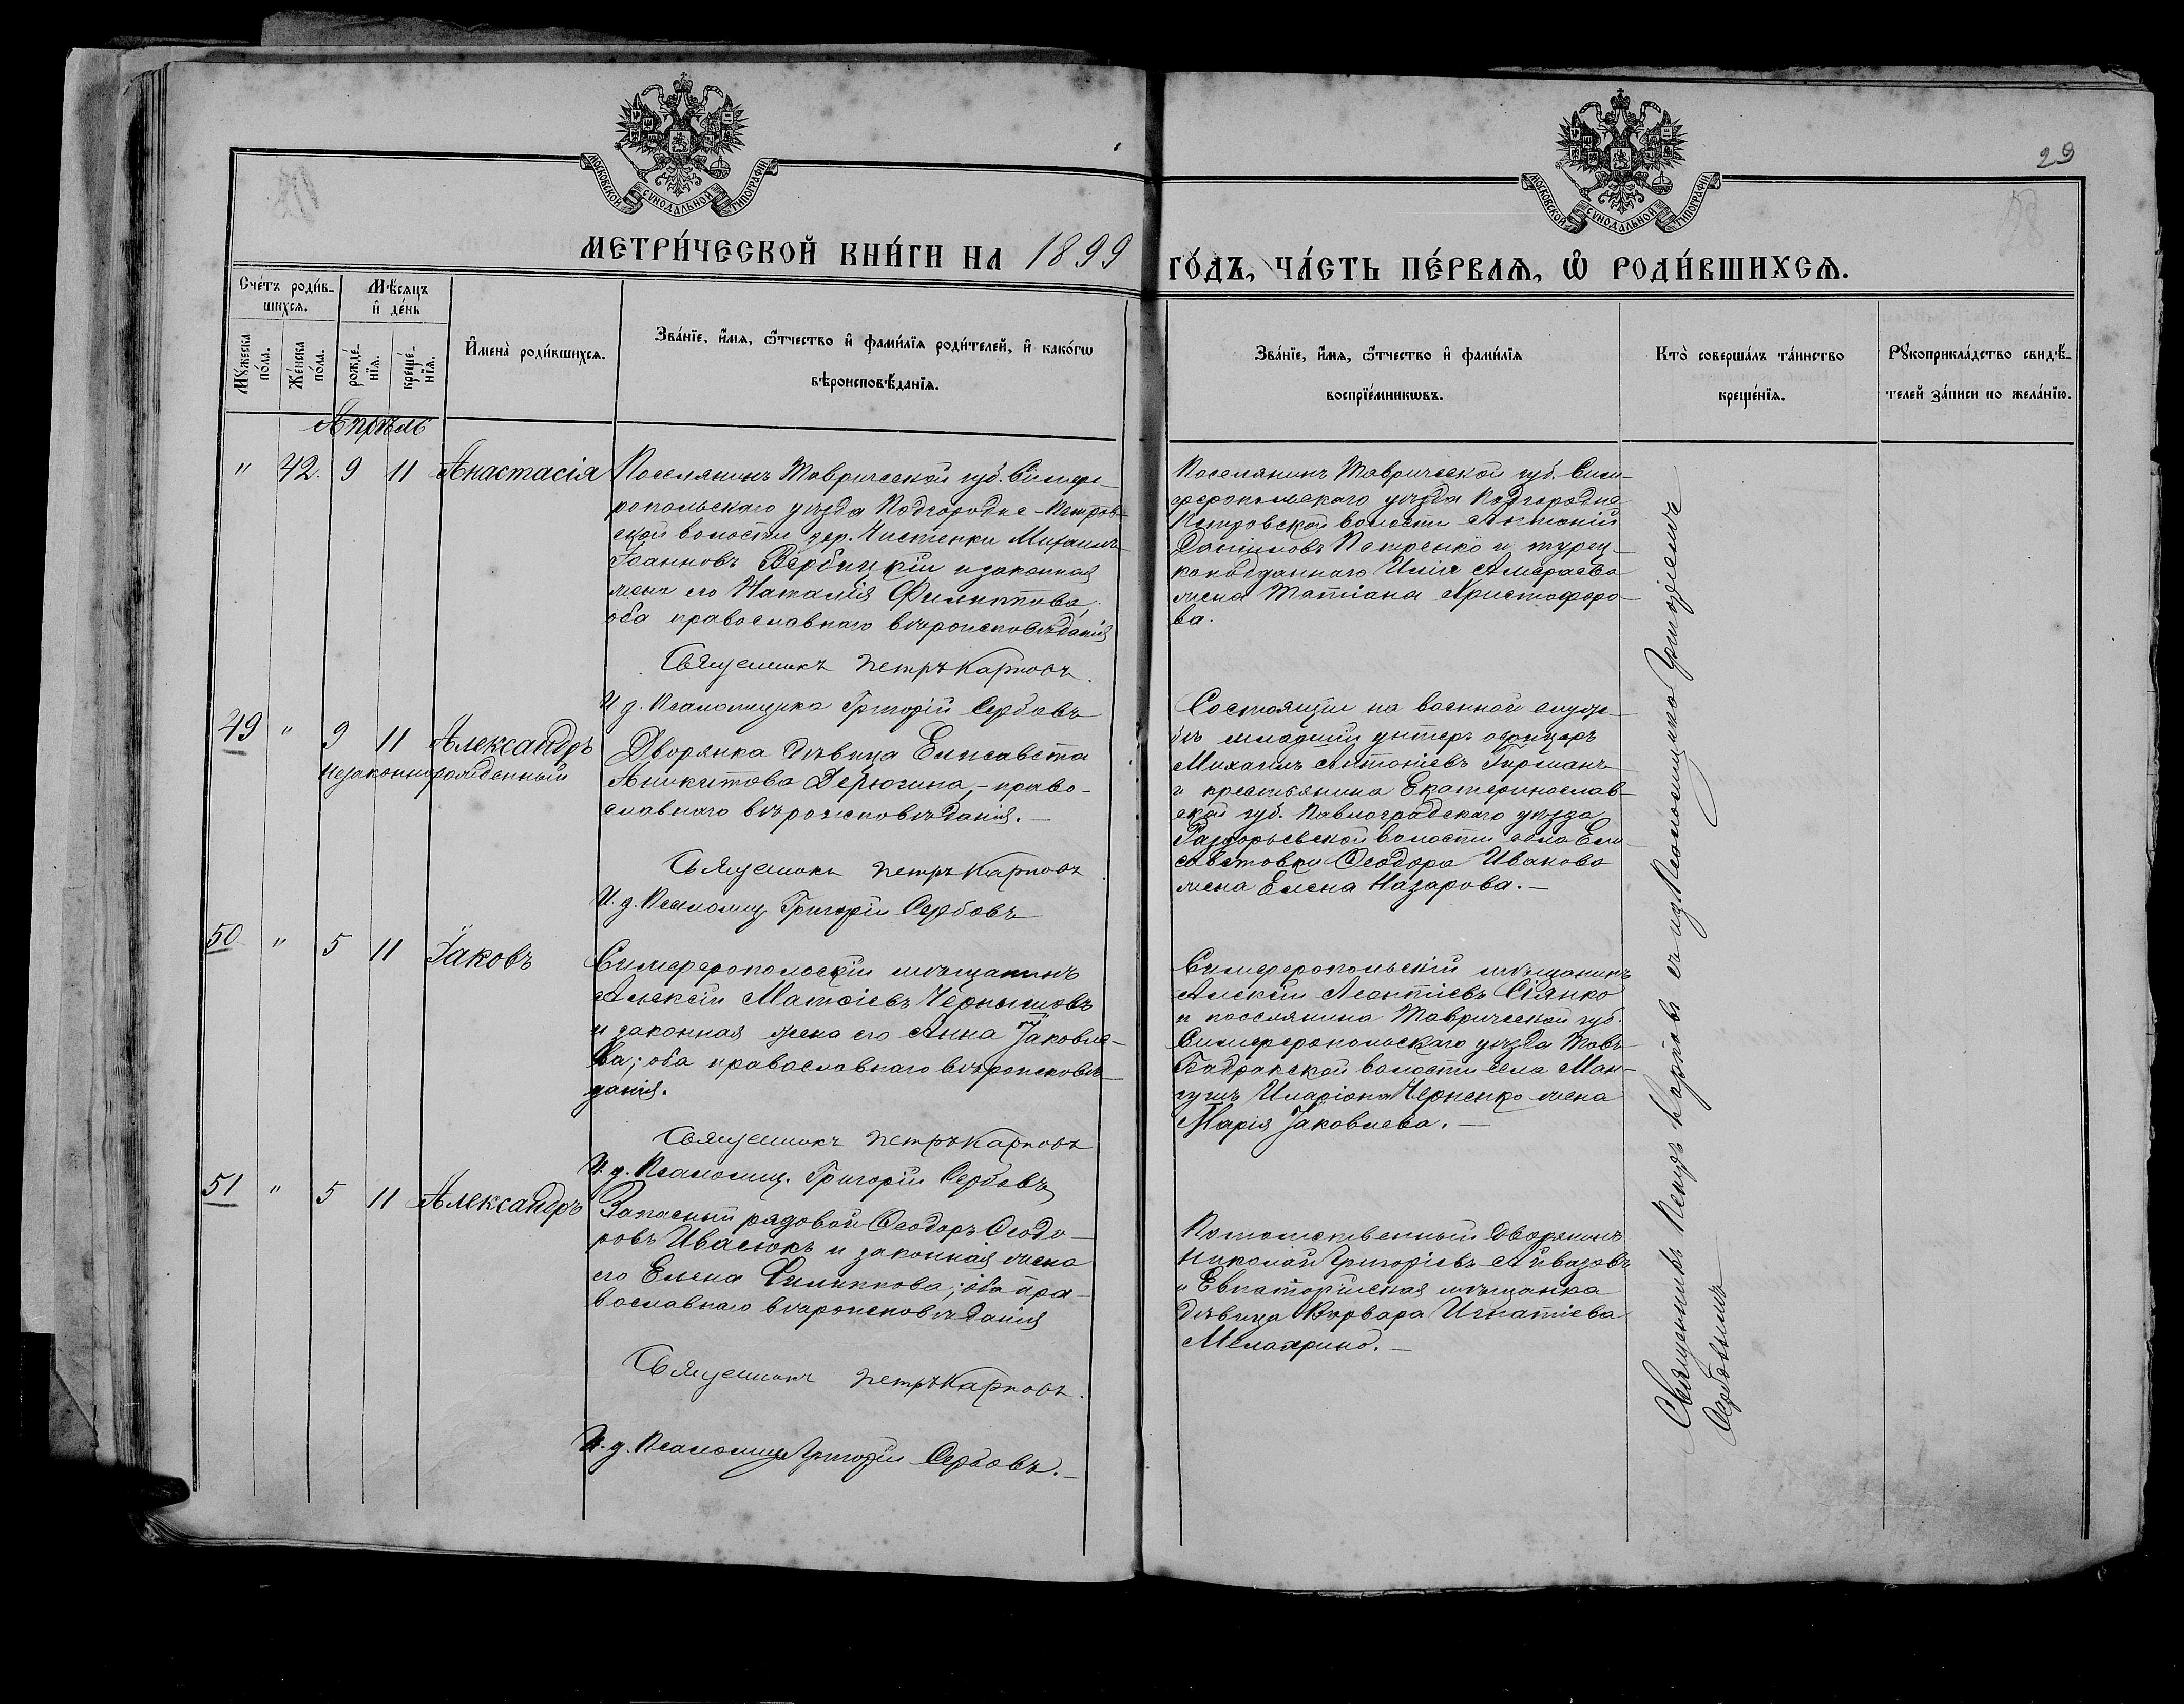 29
МОСКОВСКОЙ СѴНОДАЛЬНОЙ ТИПОГРАФІИ
МОСКОВСКОЙ СѴНОДАЛЬНОЙ ТИПОГРАФІИ
МЕТРИ́ЧЕСКОЙ КНИ́ГИ НА 1899
ГО́ДЪ, ЧА́СТЬ ПЕ́РВАЯ, Ѽ РОДИ́ВШИХСЯ.
Сче́тъ роди́в-
шихся.
Мѣ́сяцъ
и҆ де́нь
Мꙋ́жеска
по́ла.
Же́нска
по́ла.
рожде́-
нїя.
креще́-
нїя.
И҆мена̀ роди́вшихся.
Зва́нїе, и҆́мя, ѻ҆́тчество и҆ фами́лїя роди́телей, и҆ како́гѡ
вѣроисповѣ́данїя.
Зва́нїе, и҆́мя, ѻ҆́тчество и҆ фами́лїя
воспрїе́мникѡвъ.
Кто̀ соверша́лъ та́инство
креще́нїя.
Рꙋкоприкла́дство свидѣ́-
телей за́писи по жела́нїю.
Апрѣль
" 42. 9 11 Анастасія
Поселянинъ Таврической губ. Симфе-
ропольскаго уѣзда Подгородне-Петров-
ской волости дер. Чистенки Михаилъ
Іоанновъ Вербицкій и законная
жена его Наталія Филиппова,
оба православнаго вѣроисповѣданія
Священникъ Петръ Карповъ.
И. д. Псаломщика Григорій Сербовъ
Поселянинъ Таврической губ. Сим-
феропольскаго уѣзда Подгородне
Петровской волости Антоній
Даниловъ Петренко и турец-
коподданнаго Иліи
жена Татіана Христофоро-
ва.
49 " 9 11 Александръ
незаконнорожденный
Дворянка дѣвица Елисавета
Аникитова Дерюгина, - право-
славнаго вѣроисповѣданія. -
Священникъ Петръ Карповъ
И. д. Псаломщ. Григорій Сербовъ
Состоящій на военной служ-
бѣ младшій унтеръ офицеръ
Михаилъ Антоніевъ Германъ
и крестьянина Екатеринослав-
ской губ. Павлоградскаго уѣзда
волости села Ели-
саветовки Ѳеодора Иванова
жена Елена Назарова. -
50 " 5 11 Іаковъ
Симферопольскій мѣщанинъ
Алексій Матѳіевъ Чернышовъ
и законная жена его Анна Іаковле-
ва; оба православнаго вѣроисповѣ-
данія.
Священникъ Петръ Карповъ
И. д. Псаломщ. Григорій Сербовъ
Симферопольскій мѣщанинъ
Алексій Леонтіевъ Сіянко
и поселянина Таврической губ.
Симферопольскаго уѣзда Тавъ-
Бадракской волости села Ман-
гушъ Иларіона Черненко жена
Марія Іаковлева. -
51 " 5 11 Александръ
Запасный рядовой Ѳеодоръ Ѳеодо-
ровъ Ивасюкъ и законная жена
его Елена Филиппова; оба пра-
вославнаго вѣроисповѣданія
Священникъ Петръ Карповъ.
И. д. Псаломщ. Григорій Сербовъ. -
Потомственный Дворянинъ
Николай Григоріевъ Айвазовъ
и Евпаторійская мѣщанка
дѣвица Варвара Игнатіева
Священникъ Петръ Карповъ съ и. д. Псаломщика Григоріемъ
Сербовымъ